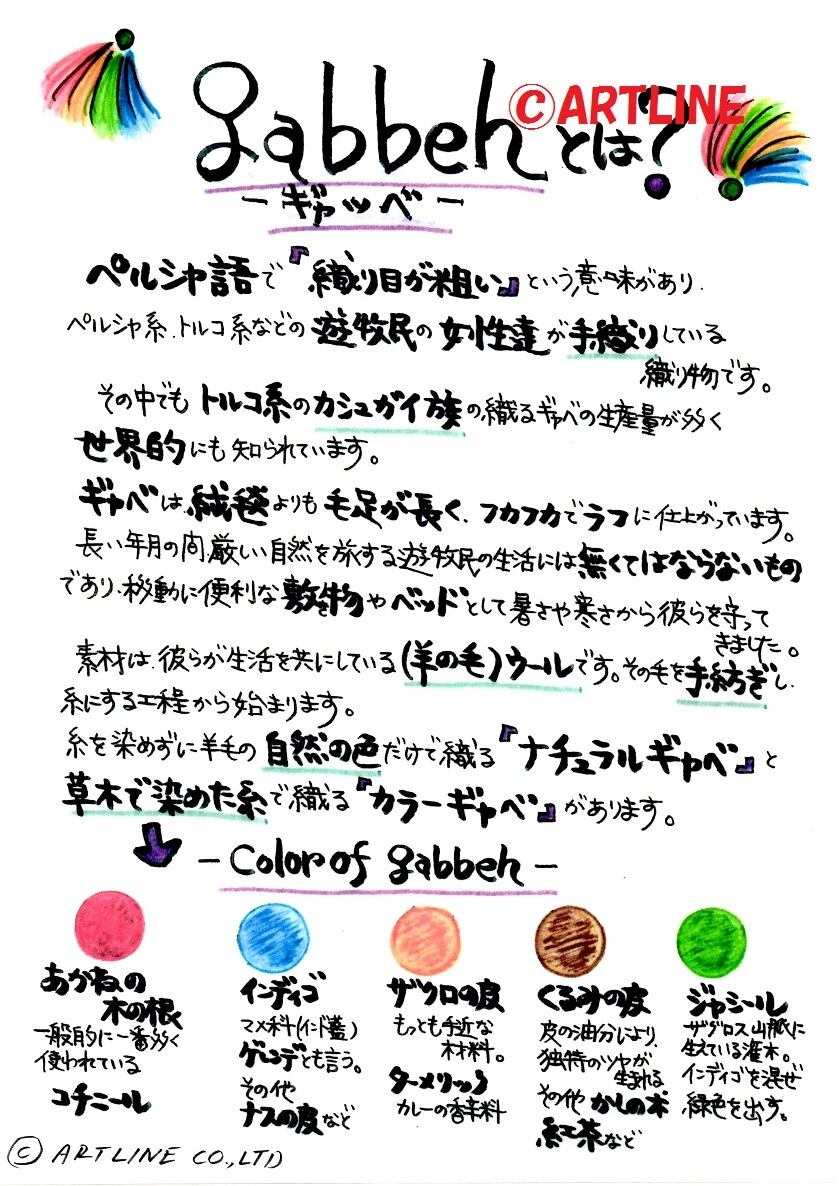 gabbeh とは?
©ARTLINE
-ギャッベ-
ペルシャ語で『織り目が粗い』という意味があり、
ペルシャ系、トルコ系などの遊牧民の女性達が手織りしている
織り物です。
その中でもトルコ系のカシュガイ族の織るギャベの生産量が多く
世界的にも知られています。
ギャベは、絨毯よりも毛足が長く、フカフカでラフに仕上がっています。
長い年月の間、厳しい自然を旅する遊牧民の生活には無くてはならないもの
であり、移動に便利な敷き物やベッドとして暑さや寒さから彼らを守って
きました。
素材は、彼らが生活を共にしている(羊の毛)ウールです。その毛を手紡ぎし、
糸にする工程から始まります。
糸を染めずに羊毛の自然の色だけで織る『ナチュラルギャベ』と
草木で染めた糸で織る『カラーギャベ』があります。
-Color of gabbeh-
あかねの
木の根
一般的に一番多く
使われている
コチニール
インディゴ
マメ科(インド藍)
ゲレンデとも言う。
その他
ナスの皮など
ザクロの皮
もっとも手近な
材料。
ターメリック
カレーの香辛料
くるみの皮
皮の油分により、
独特のツヤが
生まれる
その他 かしの木
紅茶など
ジャシール
ザグロス山脈に
生えている灌木。
インディゴを混ぜ
緑色を出す。
© ARTLINE CO.,LTD